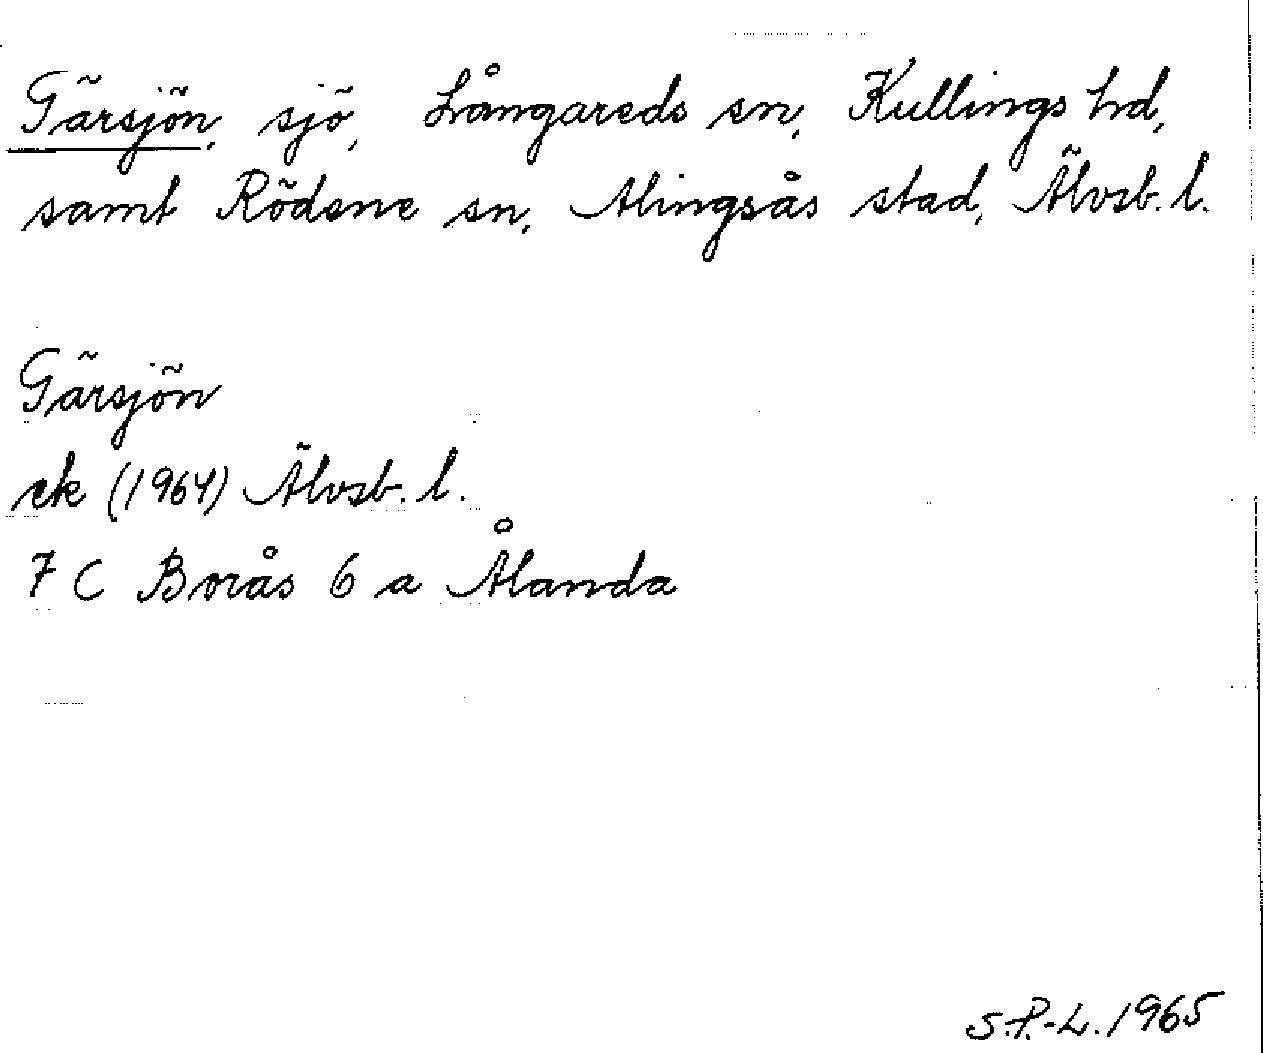 Gärsjön, sjö, Långareds sn, Kullings hd,
samt Rödene sn, Alingsås stad, Älvsb. l.
Gärsjön
ek (1964) Älvsb. l.
7 C Borås 6 a Ålanda
S.P.-L. 1965